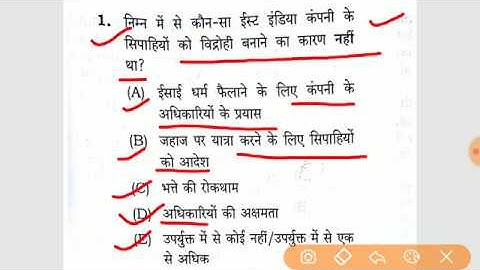 1. निम्न में से कौन-सा ईस्ट इंडिया कंपनी के
सिपाहियों को विद्रोही बनाने का कारण नहीं
था?
(A) ईसाई धर्म फैलाने के लिए कंपनी के
अधिकारियों के प्रयास
(B) जहाज पर यात्रा करने के लिए सिपाहियों
को आदेश
(C) भत्ते की रोकथाम
(D) अधिकारियों की अक्षमता
(E) उपर्युक्त में से कोई नहीं/उपर्युक्त में से एक
से अधिक